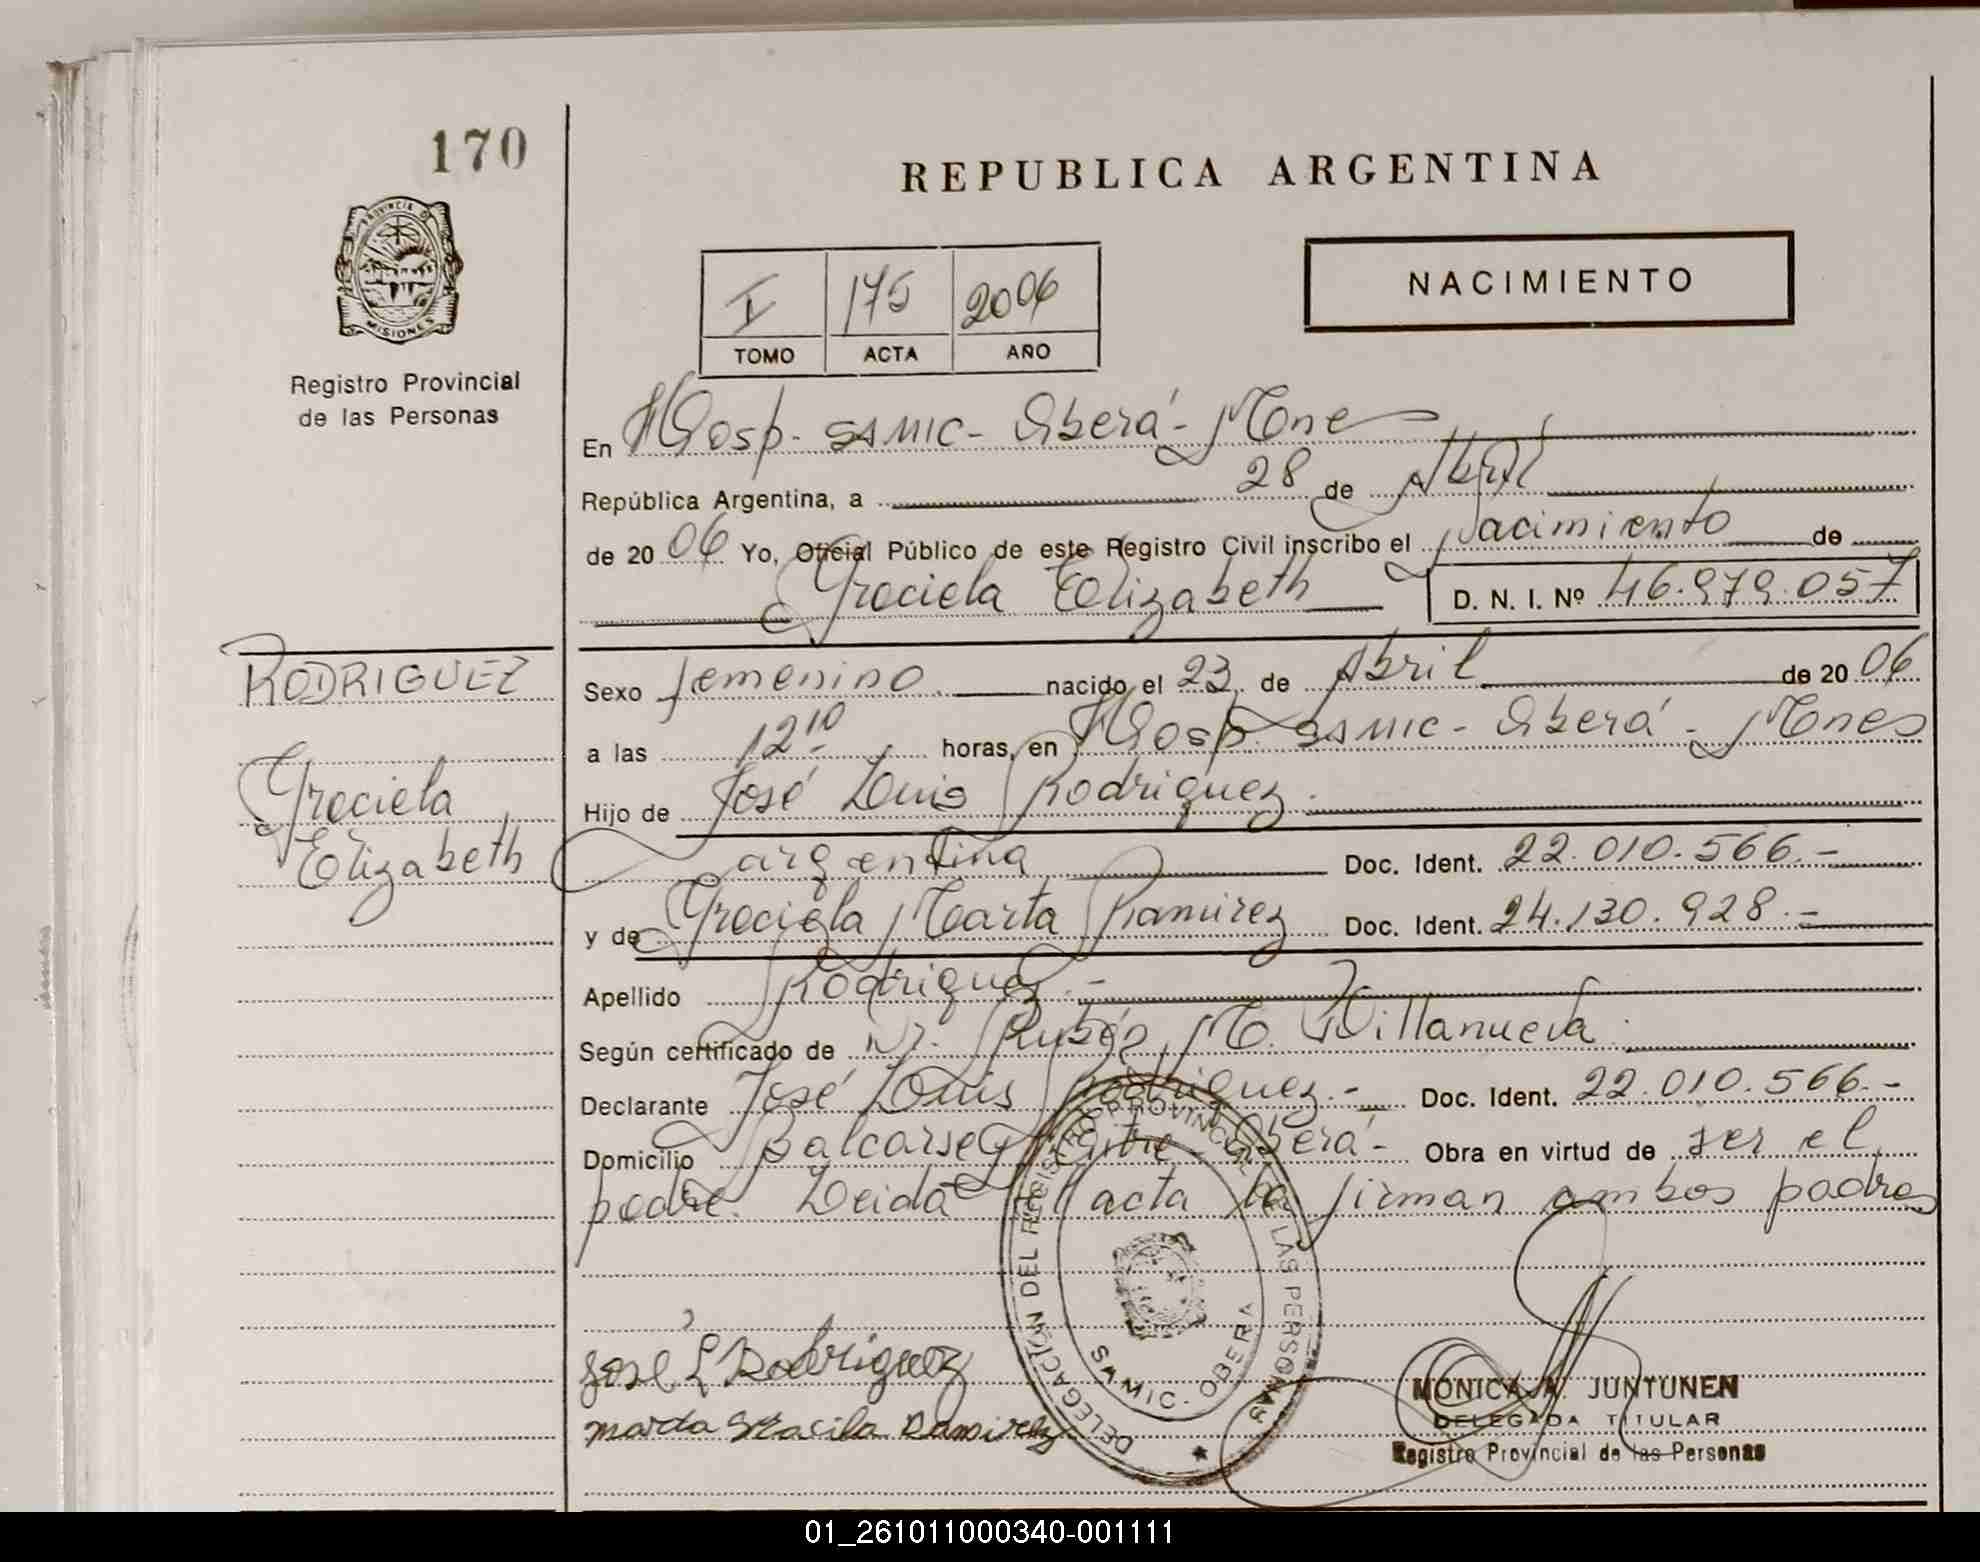 170
REPUBLICA ARGENTINA
PROVINCIA D
MISIONES
Registro Provincial
de las Personas
NACIMIENTO
I 175 2006
TOMO ACTA AÑO
En Hosp. SAMIC - Oberá - Mnes
República Argentina, a 28 de Abril
de 2006 Yo, Oficial Público de este Registro Civil inscribo el Nacimiento de
Graciela Elizabeth D. N. I. Nº 46.979.057
RODRIGUEZ
Graciela
Elizabeth
Sexo femenino nacido el 23 de Abril de 2006
a las 12 10 horas, en Hosp. SAMIC - Oberá - Mnes
Hijo de José Luis Rodriguez.
argentina Doc. Ident. 22.010.566.-
y de Graciela Marta Ramirez Doc. Ident. 24.130.928.-
Apellido Rodriguez.-
Según certificado de Dr. Rubén M. Villanueva.
Declarante José Luis Rodriguez.- Doc. Ident. 22.010.566.-
Domicilio Balcarse y Oberá - Obra en virtud de ser el
padre. Leida el acta la firman ambos padres
José L Rodriguez
marta Gracila Ramirez
DELEGACIÓN DEL REGISTRO PROVINCIAL DE LAS PERSONAS
SAMIC. OBERA
MONICA JUNTUNEN
DELEGADA TITULAR
Registro Provincial de las Personas
01_261011000340-001111